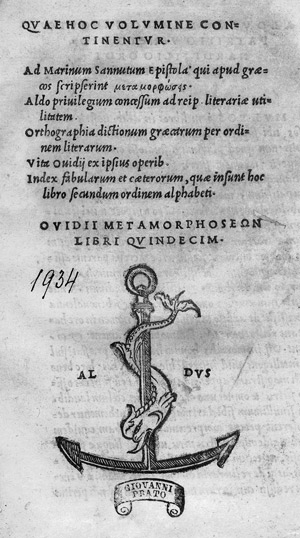 QVAE HOC VOLVMINE CON-
TINENTVR.
Ad Marinum Sannutum Epistola qui apud græ-
cos scripserint μεταμορφώσεις.
Aldo priuilegium concessum ad reip. literariæ uti-
litatem.
Orthographia dictionum græcarum per ordi-
nem literarum.
Vita Ouidij ex ipsius operib.
Index fabularum et cæterorum, quæ insunt hoc
libro secundum ordinem alphabeti.
OVIDII METAMORPHOSEΩN
LIBRI QVINDECIM.
1934
AL DVS
GIOVANNI
PRATO